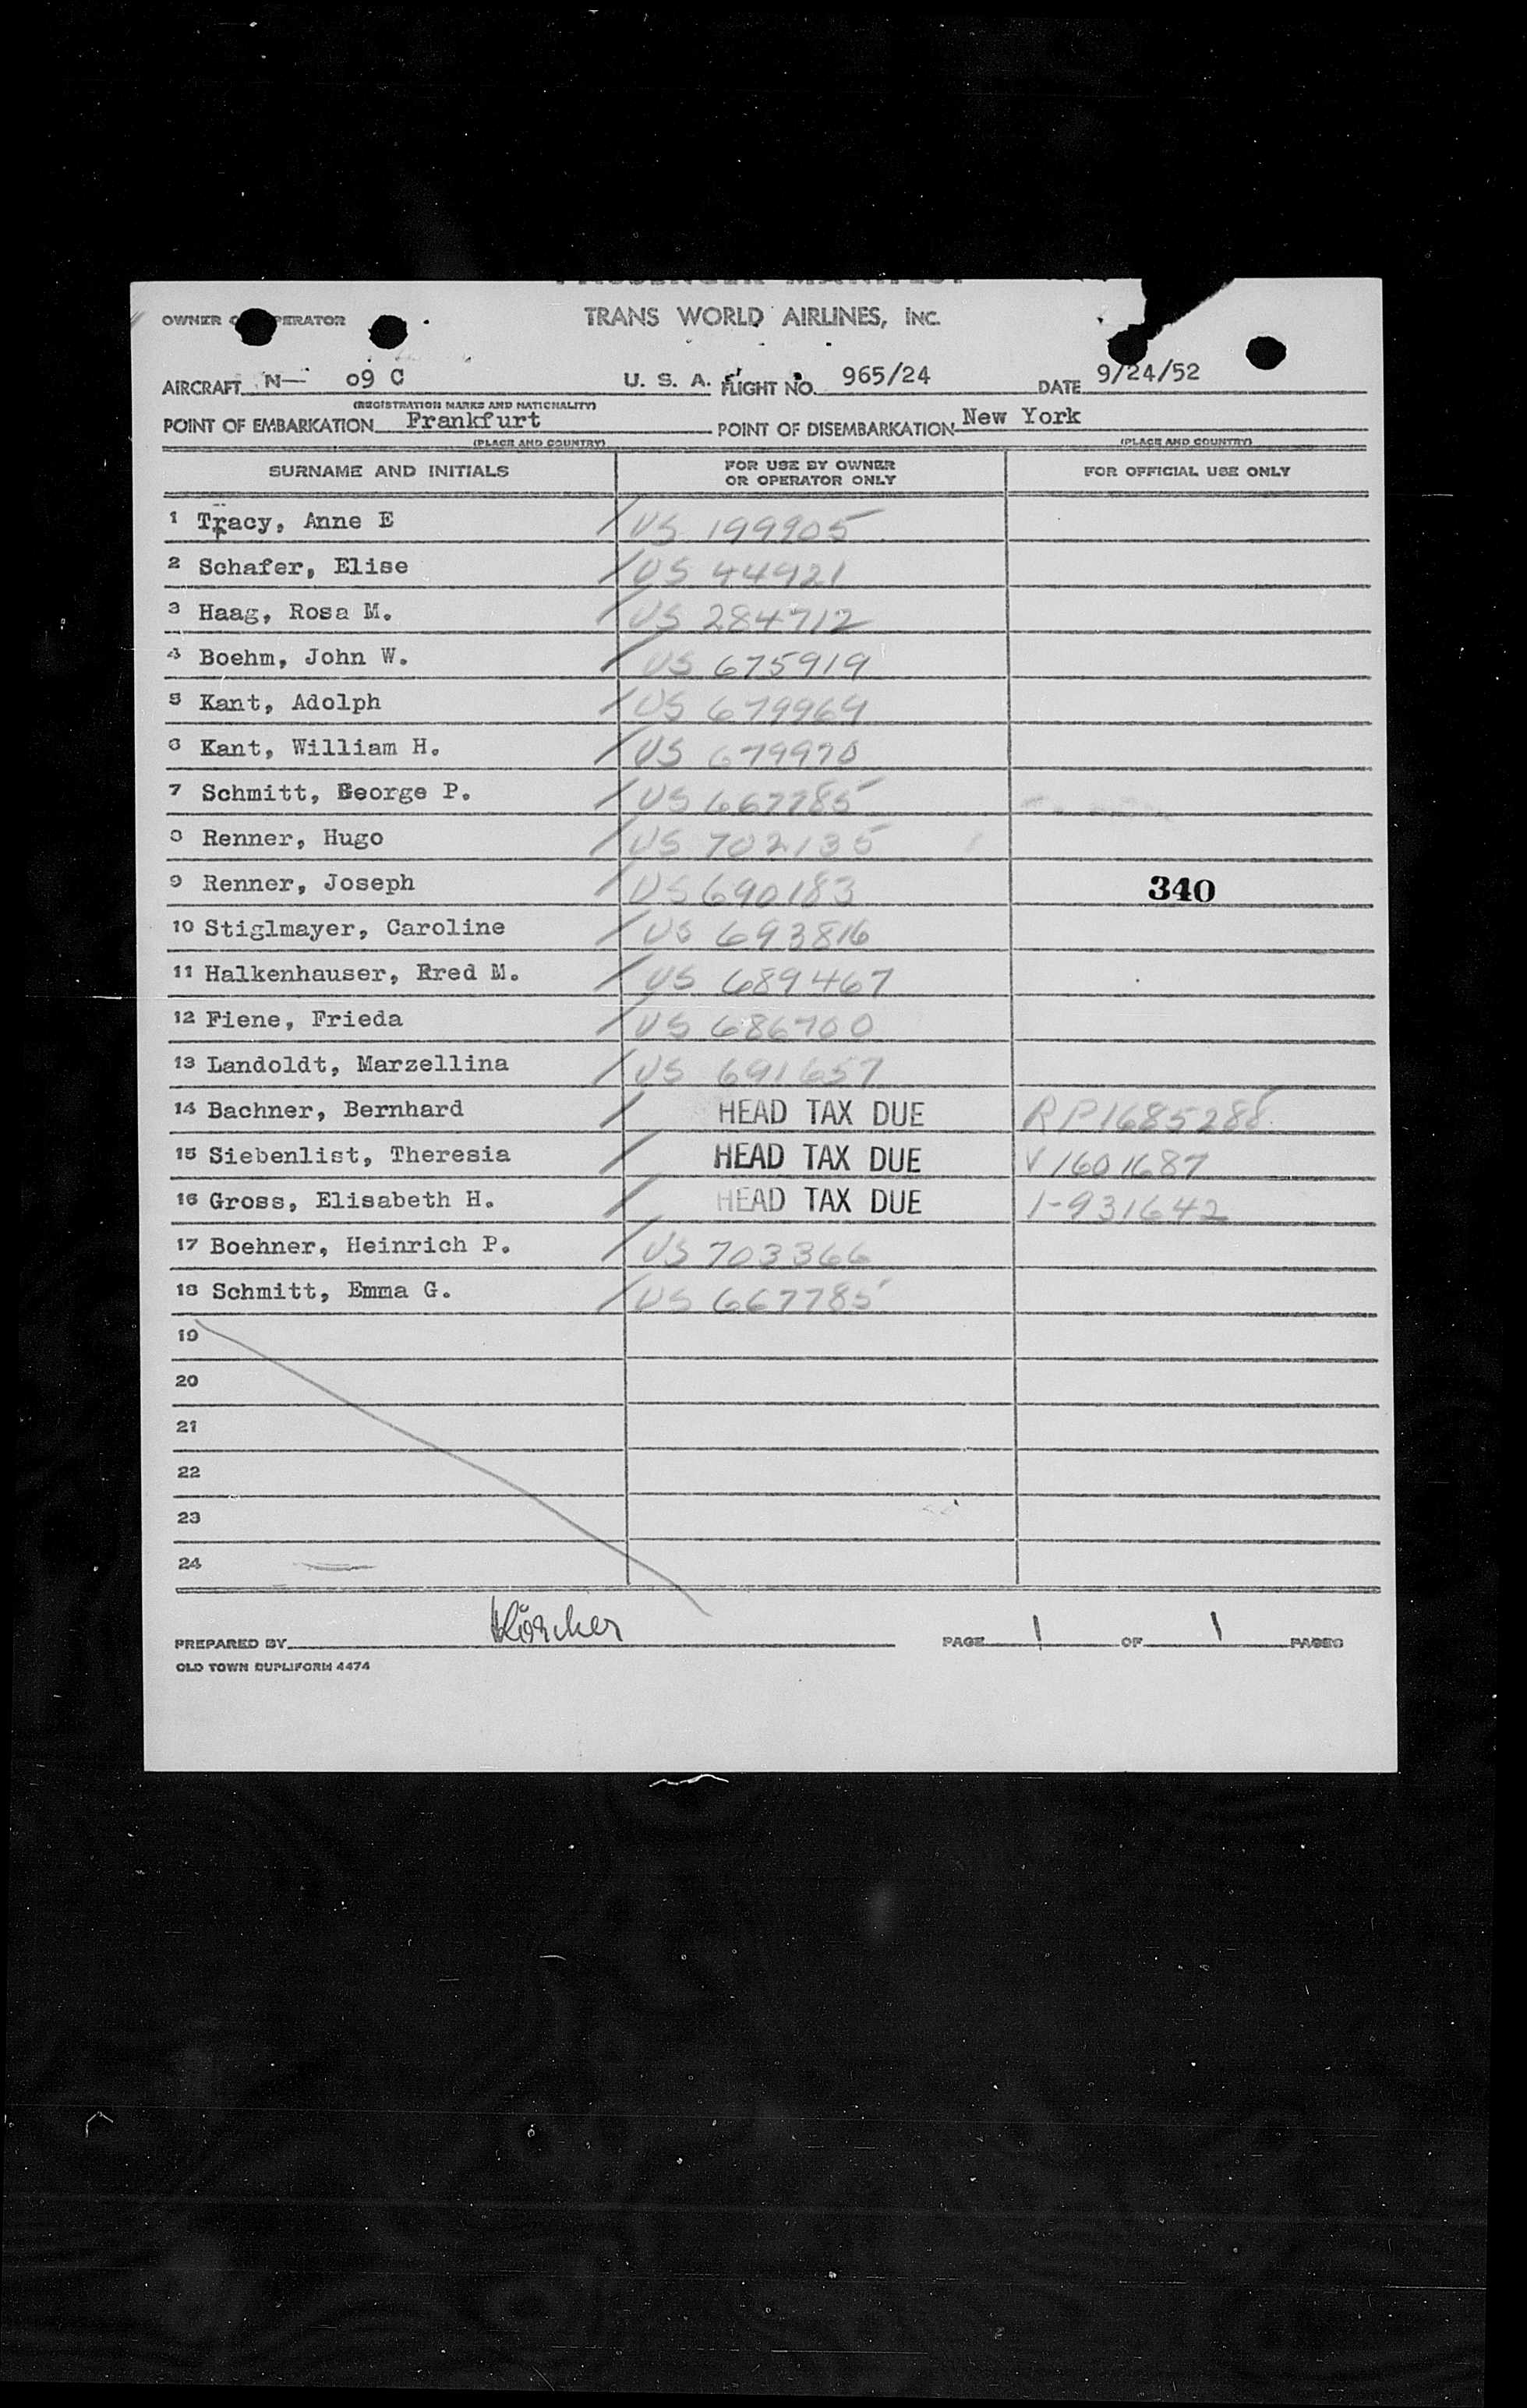 PASSENGER MANIFEST
OWNER OPERATOR TRANS WORLD AIRLINES, INC.
AIRCRAFT N— 09 C U. S. A. FLIGHT NO. 965/24 DATE 9/24/52
(REGISTRATION MARKS AND NATIONALITY)
POINT OF EMBARKATION Frankfurt POINT OF DISEMBARKATION New York
(PLACE AND COUNTRY) (PLACE AND COUNTRY)
SURNAME AND INITIALS FOR USE BY OWNER OR OPERATOR ONLY FOR OFFICIAL USE ONLY
1 Tracy, Anne E / US 199905
2 Schafer, Elise / US 44921
3 Haag, Rosa M. / US 284712
4 Boehm, John W. / US 675919
5 Kant, Adolph / US 679969
6 Kant, William H. / US 679970
7 Schmitt, George P. / US 667785
8 Renner, Hugo / US 702135
9 Renner, Joseph / US 690183 340
10 Stiglmayer, Caroline / US 693816
11 Halkenhauser, Fred M. / US 689467
12 Fiene, Frieda / US 686700
13 Landoldt, Marzellina / US 691657
14 Bachner, Bernhard / HEAD TAX DUE RP1685288
15 Siebenlist, Theresia / HEAD TAX DUE V 1601687
16 Gross, Elisabeth H. / HEAD TAX DUE 1-931642
17 Boehner, Heinrich P. / US 703366
18 Schmitt, Emma G. / US 667785
19
20
21
22
23
24
PREPARED BY PAGE 1 OF 1 PAGES
OLD TOWN DUPLIFORM 4474